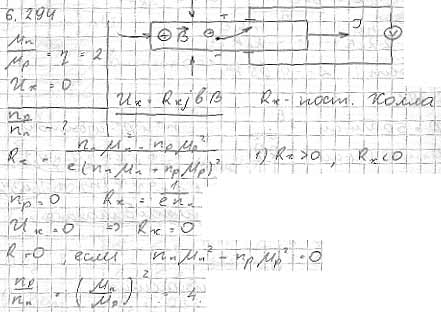 6.294
μn/μp = η = 2
Uх = 0
np/nn - ?
⊕ B⃗ ⊖ + - J V
Uх = Rх j b B Rх - пост. Холла
Rх = (nnμn² - npμp²)/(e(nnμn + npμp)²) 1) Rх>0, Rх<0
np=0 Rх = 1/(enn)
Uх=0 ⇒ Rх=0
R=0, если nnμn² - npμp² = 0
np/nn = (μn/μp)² = 4.